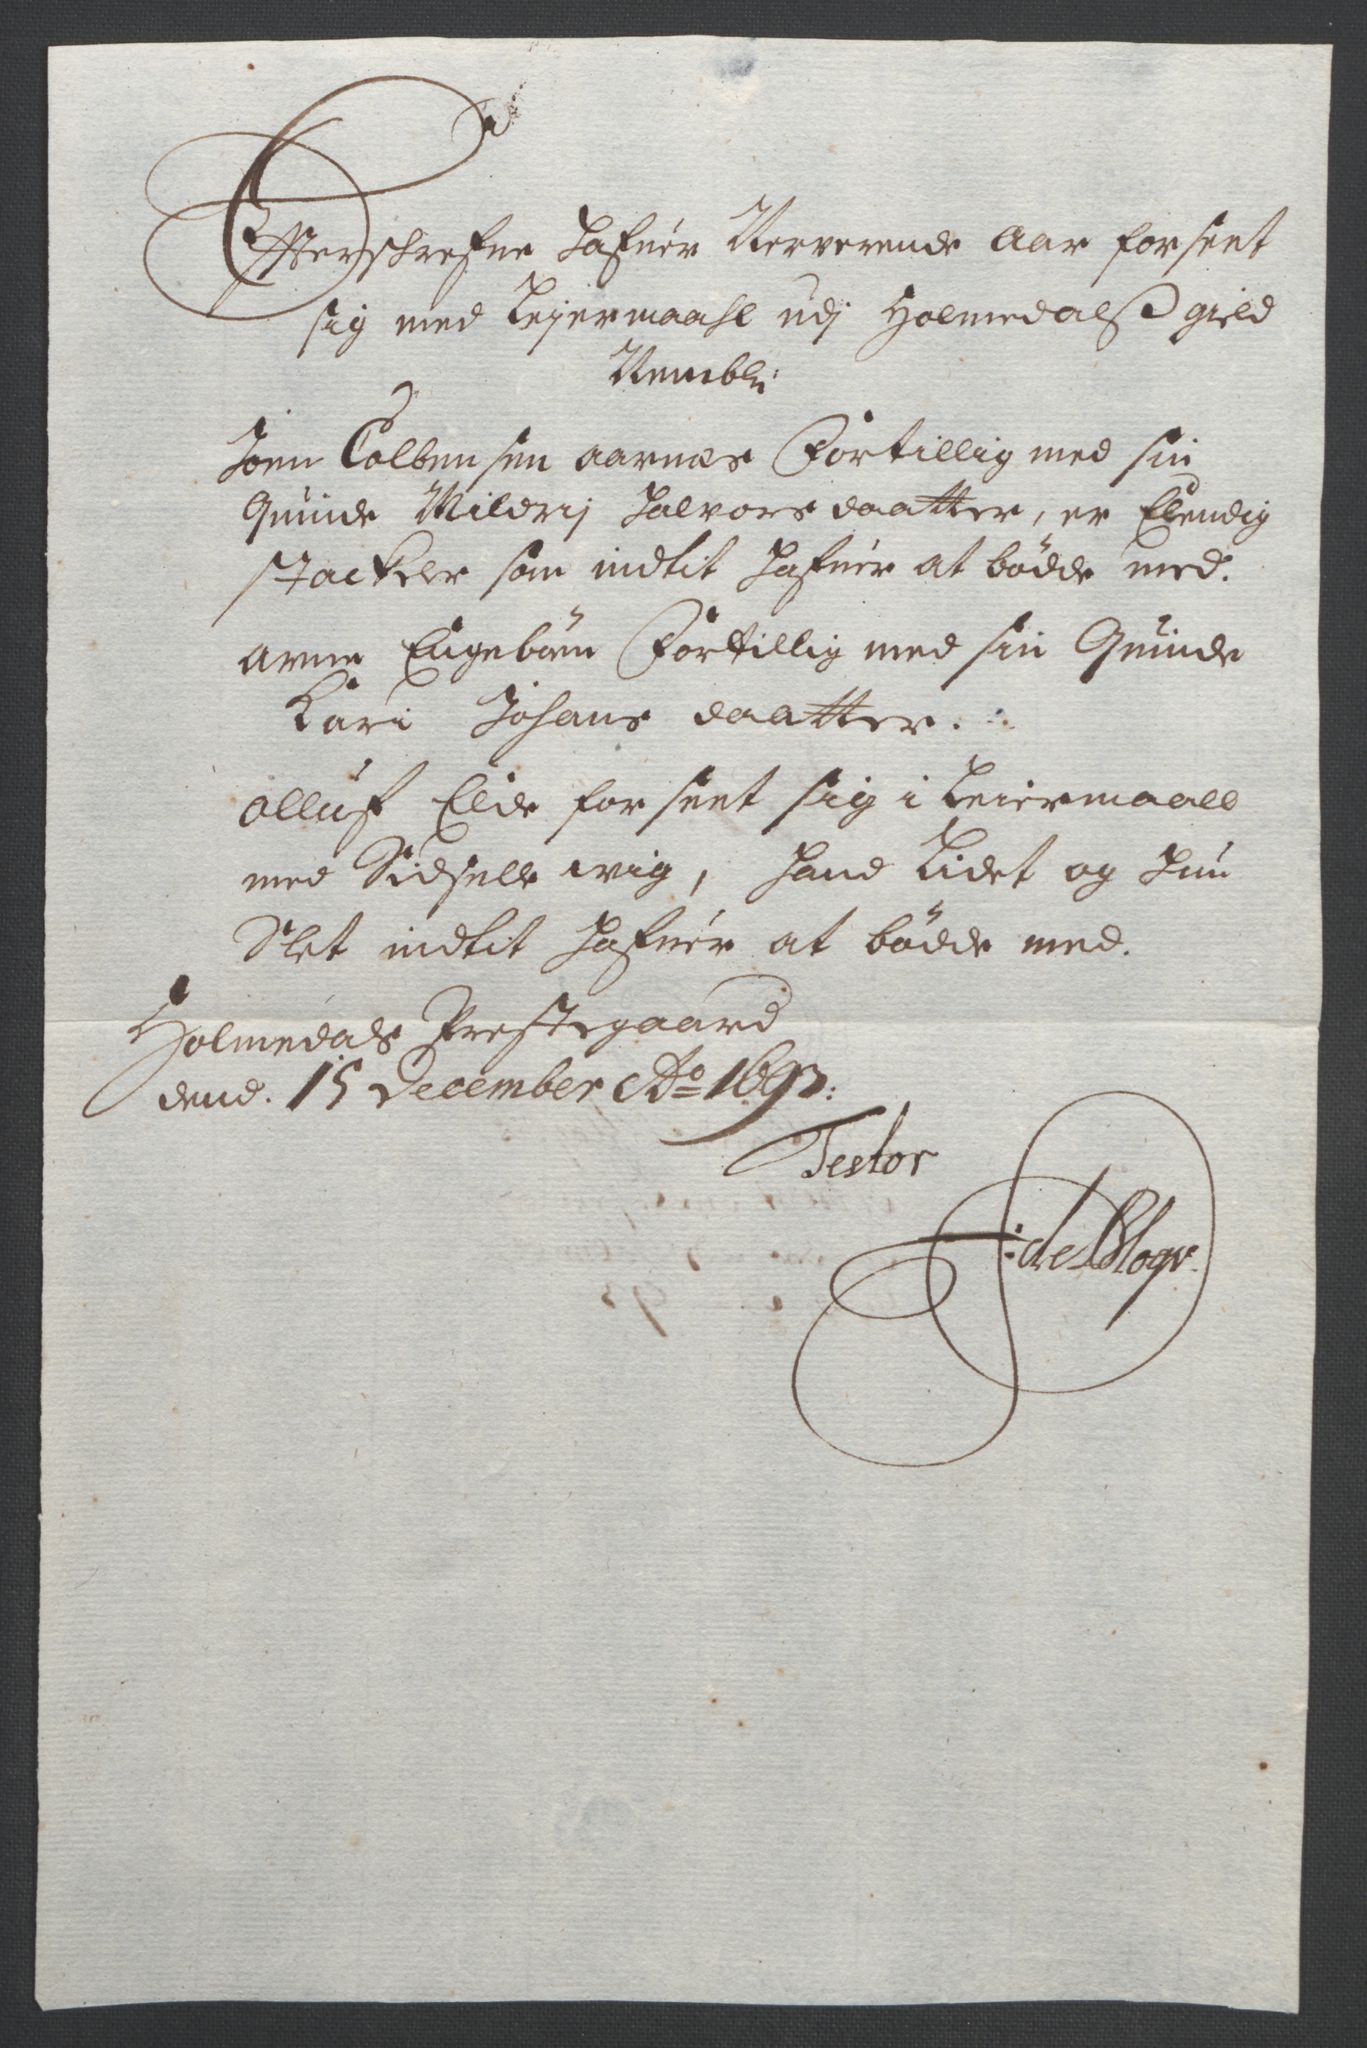 Effterschrefne hafuer Nerverende aar forseet
sig med Leiermaahl udj Holmedalß gield
Nemblj
Joen Colbensen aarnæs Förtillig med sin
Quinde Mildrij Halvorsdaatter, er Elendig
stackeler som indtit hafuer at bödde med.
arne Engeböen Förtillig med sin Quinde
Kari Johans daatter.
olluf Elde forseet sig i Leiermaall
med Sidselle wig, hand Lidet og hun
Slet indtit hafuer at bödde med.
Holmedals Prestegaard
dend. 15 December Ao 1693:
Testor
J: de Blogv.